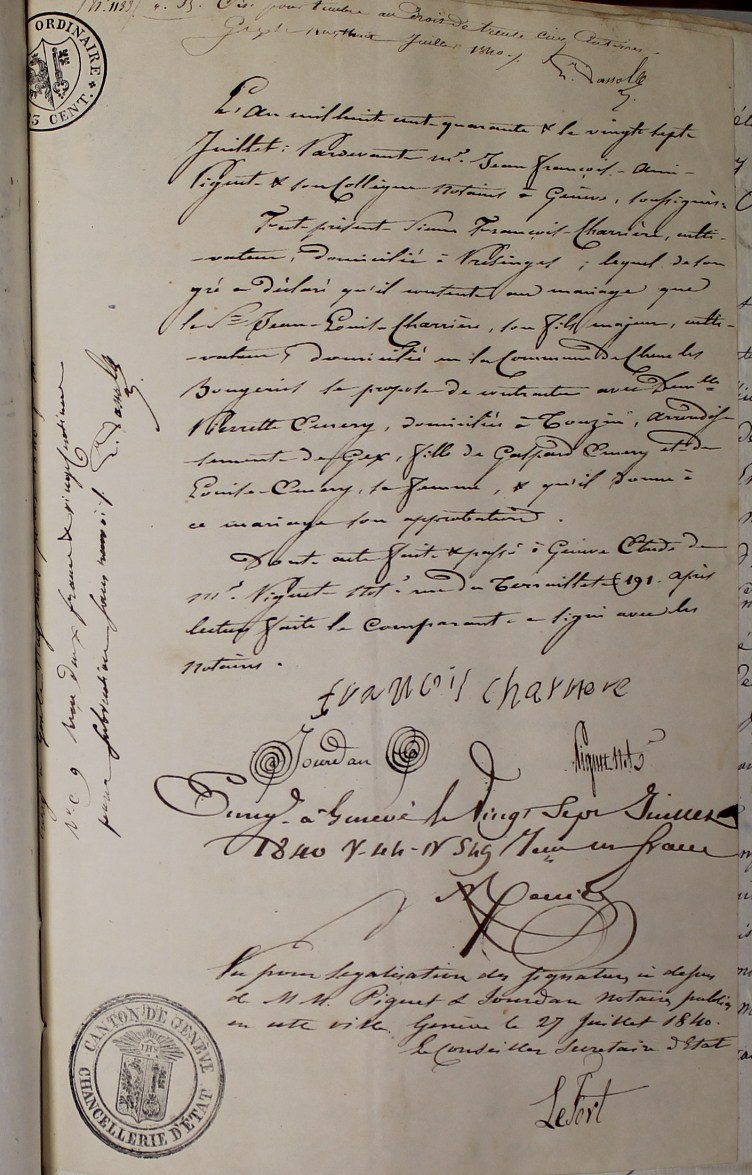 ORDINAIRE
CENT.
Visé pour timbre au droit de trente cinq Centimes
Juillet 1840
L'an mil huit cent quarante & le vingt sept
Juillet: Pardevant Mr. Jean François-Ami-
Piguet & son Collègue notaires à Genève, soussignés:
Fut présent Sieur François Charrière, culti-
-vateur, domicilié à Presinges; lequel de son
gré a déclaré qu'il consent au mariage que
le Sr. Jean-Louis Charrière, son fils majeur, culti-
-vateur, domicilié en la Commune de Chene les
Bougeries se propose de contracter avec Demlle
Pierrette domiciliée à arrondis-
sement de Gex, fille de Gaspard et de
Louise sa femme, & qu'il donne à
ce mariage son approbation.
Dont acte fait & passé à Genève Etude de
Mr. Piguet Notre. rue du Terraillet 191. après
lecture faite le comparant a signé avec les
notaires.
françois charriere
Jourdan Piguet Notre
à Genève le Vingt Sept Juillet
1840 un franc
Vu pour légalisation des signatures ci dessus
de M.M. Piguet & Jourdan notaires publics
en cette ville. Genève le 27 Juillet 1840.
Le Conseiller Secretaire d'Etat
LeFort
CANTON DE GENÈVE
CHANCELLERIE D'ÉTAT